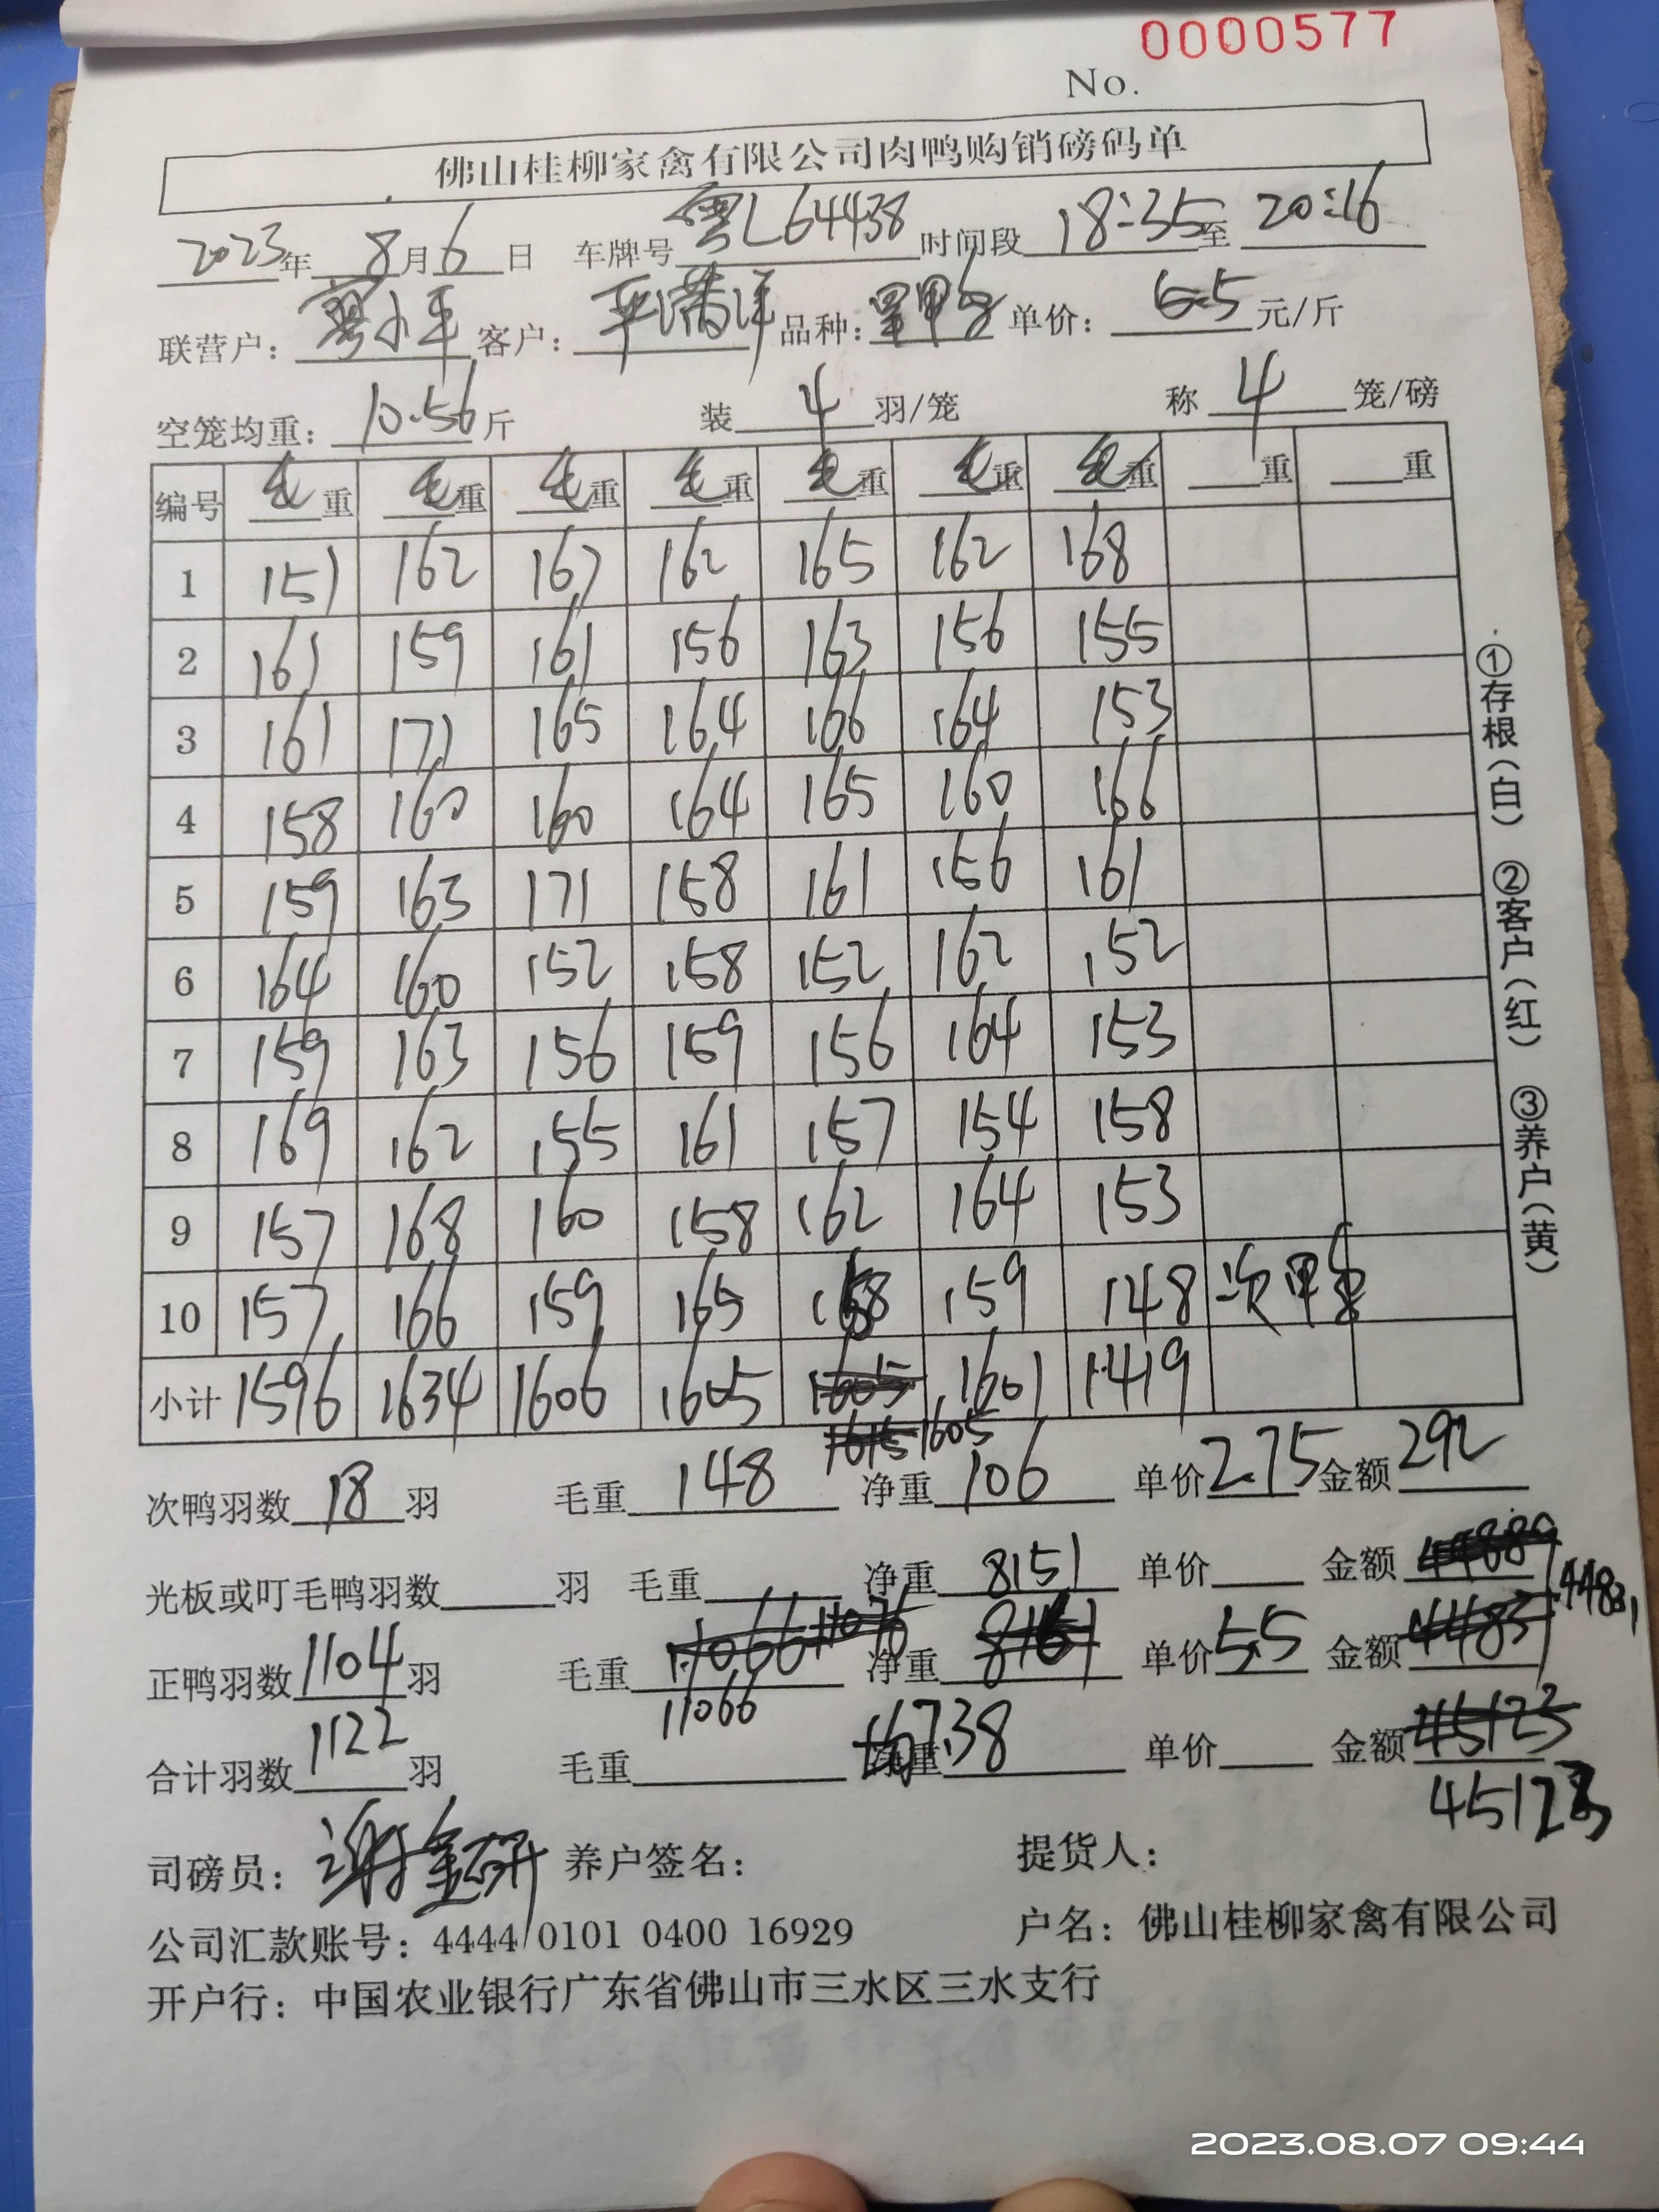 0000577
No.
佛山桂柳家禽有限公司肉鸭购销磅码单
2023年 8月6日 车牌号 粤L64438 时间段 18:35至 20:16
联营户: 小平 客户: 品种: 单价: 5.5 元/斤
空笼均重: 10.56斤 装 4 羽/笼 称 4 笼/磅
编号 毛重 毛重 毛重 毛重 毛重 毛重 毛重 重 重
1 151 162 167 162 165 162 168
2 161 159 161 156 163 156 155
3 161 171 165 164 166 164 153
4 158 160 160 164 165 160 166
5 159 163 171 158 161 156 161
6 164 160 152 158 152 162 152
7 159 163 156 159 156 164 153
8 169 162 155 161 157 154 158
9 157 168 160 158 162 164 153
10 157 166 159 165 158 159 148 次甲
小计 1596 1634 1606 1605 1605 1601 1419
1615 1605
次鸭羽数 18 羽 毛重 148 净重 106 单价 2.75 金额 292
光板或叮毛鸭羽数 羽 毛重 净重 8151 单价 金额 44889
44831
正鸭羽数 1104 羽 毛重 11066 11076 净重 单价 5.5 金额 44831
11066
合计羽数 1122 羽 毛重 净重 7.38 单价 金额 45123
45123
司磅员: 谢金研 养户签名: 提货人:
公司汇款账号: 4444 0101 0400 16929 户名: 佛山桂柳家禽有限公司
开户行: 中国农业银行广东省佛山市三水区三水支行
①存根(白) ②客户(红) ③养户(黄)
2023.08.07 09:44